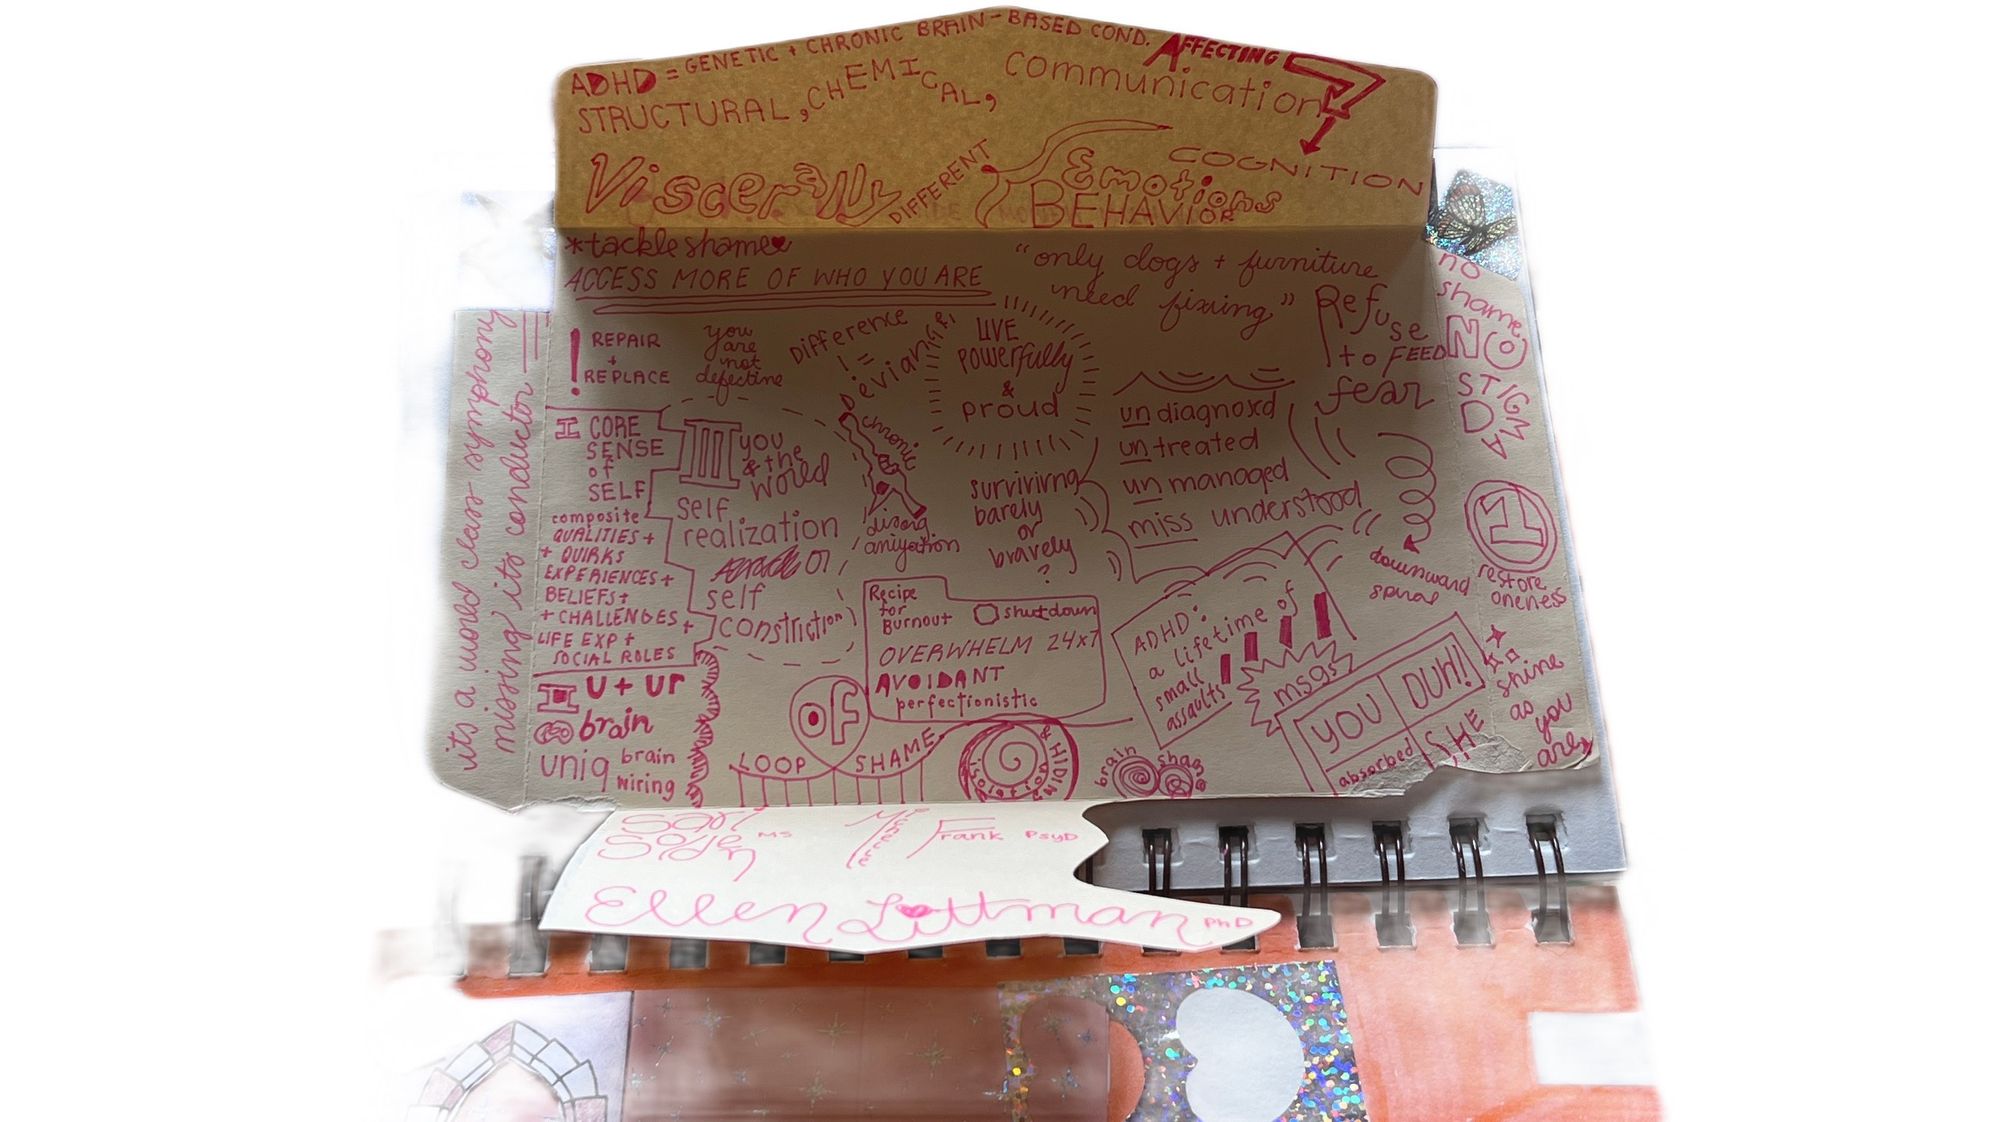 ADHD = GENETIC + CHRONIC BRAIN-BASED COND. AFFECTING
STRUCTURAL, CHEMICAL,
communication
COGNITION
Viscerally DIFFERENT
Emotions
BEHAVIOR
*tackle shame
ACCESS MORE OF WHO YOU ARE
"only dogs + furniture
need fixing"
it's a world class symphony
missing its conductor
! REPAIR
+
REPLACE
you
are
not
defective
Difference
!=
Deviance
LIVE
Powerfully
&
proud
Refuse
to FEED
fear
no
shame
NO
STIGMA
I CORE
SENSE
of
SELF
composite
QUALITIES +
+ QUIRKS
EXPERIENCES +
BELIEFS +
+ CHALLENGES +
LIFE EXP +
SOCIAL ROLES
III you
& the
World
self
realization
or
self
constriction
chronic
disorg
anization
survivirng
barely
or
bravely
?
undiagnosd
untreated
unmanaged
miss understood
downward
spiral
1
restore
oneness
II U + UR
brain
uniq brain
wiring
Recipe
for
Burnout
shutdown
OVERWHELM 24x7
AVOIDANT
perfectionistic
LOOP of SHAME
isolation & HIDING
brain
shame
ADHD:
a lifetime of
small
assaults
msgs
YOU DUH!
absorbed SHE
shine
as
you
are
Sari
Solden MS
Michelle
Frank PsyD
Ellen Littman PhD